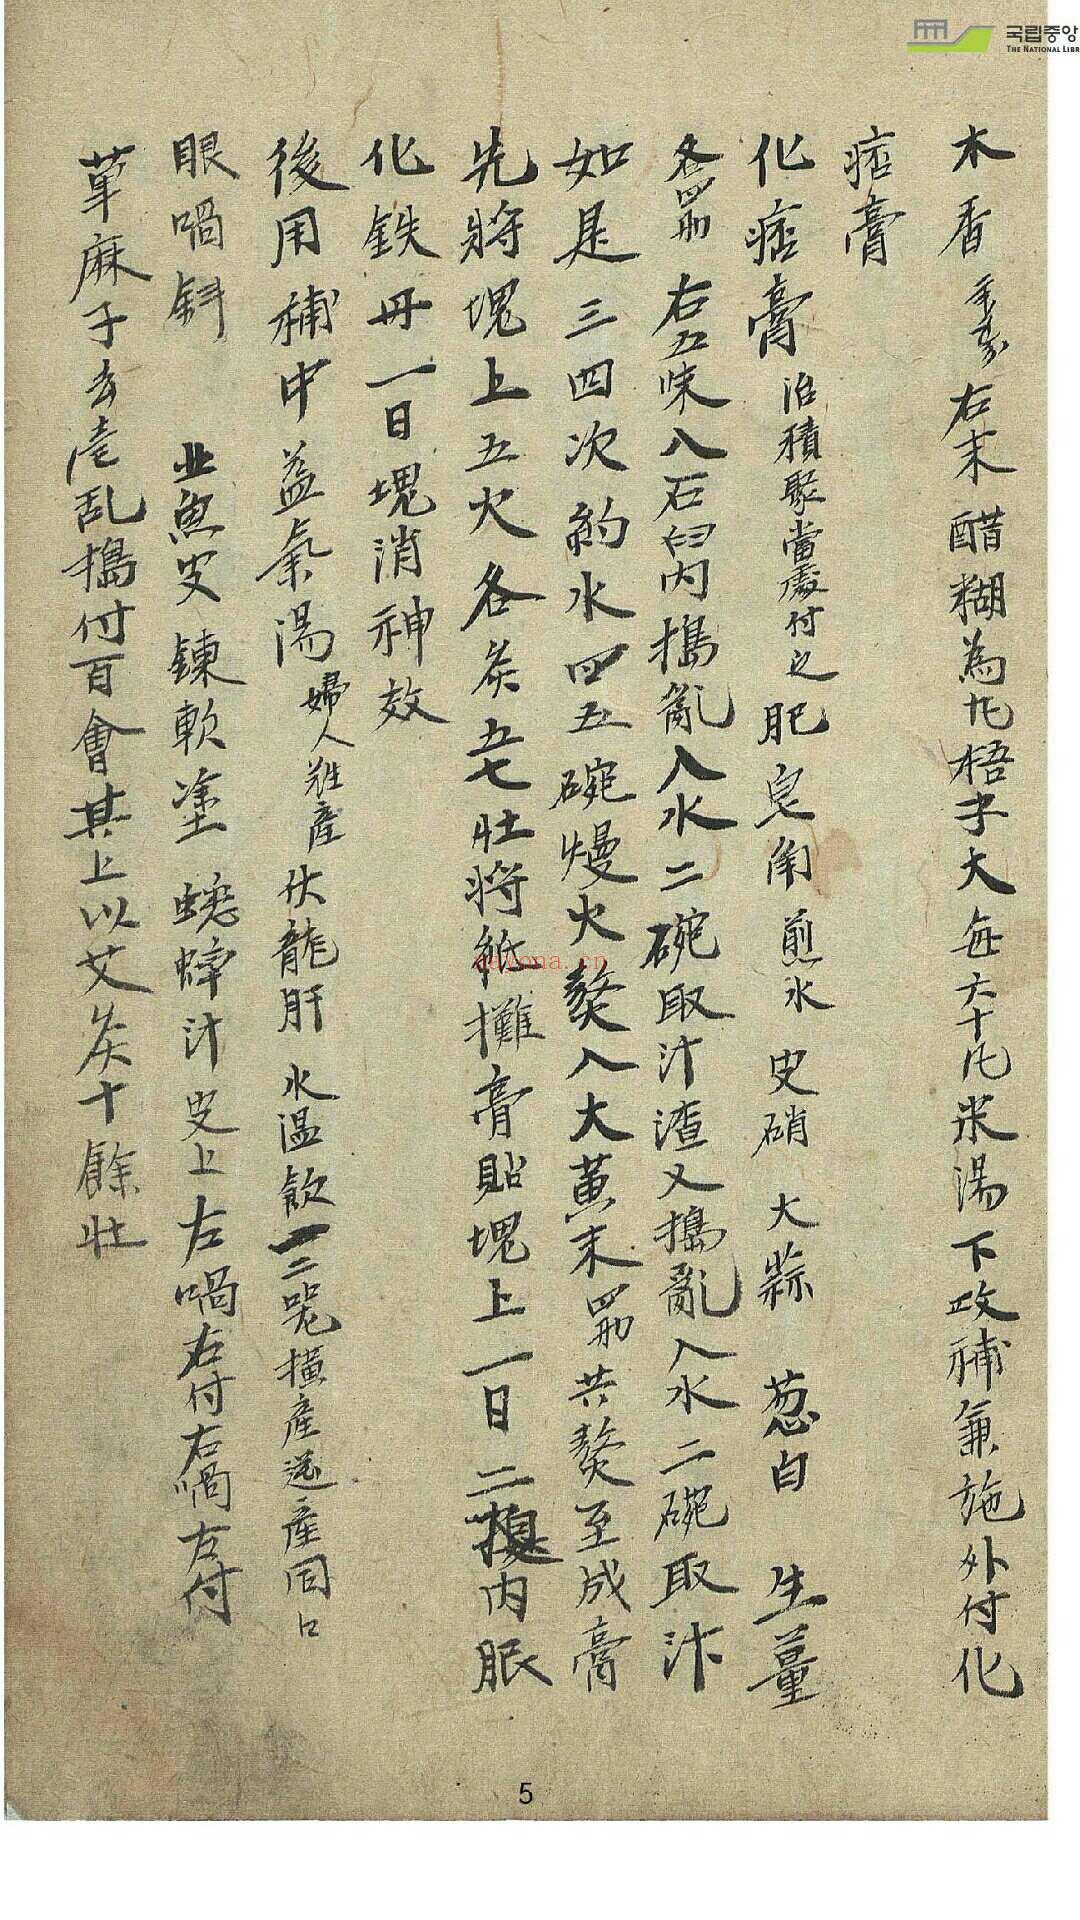 국립중앙
THE NATIONAL LIBR
木香 右末醋糊為凡梧子大每六十凡米湯下政補兼施外付化
痞膏
化痞膏 治積聚當處付之 肥皂角煎水 史硝 大蒜 葱白 生薑
各四兩 右五味入石臼內搗亂入水二碗取汁渣又搗亂入水二碗取汁
如是三四次約水四五碗熳火熬入大黄末四兩共熬至成膏
先將塊上五火各灸五七壯將紙攤膏貼塊上一日二換內眼
化鉄丹一日塊消神效
後用補中益氣湯 婦人難產 伏龍肝 水温飲一二 橫產逆產同
眼喎斜 魚皮鍊軟塗 蟋蟀汁 皮上左喎右付右喎左付
萆麻子去壳乱搗付百會其上以艾灸十餘壯
dayona.cn
5